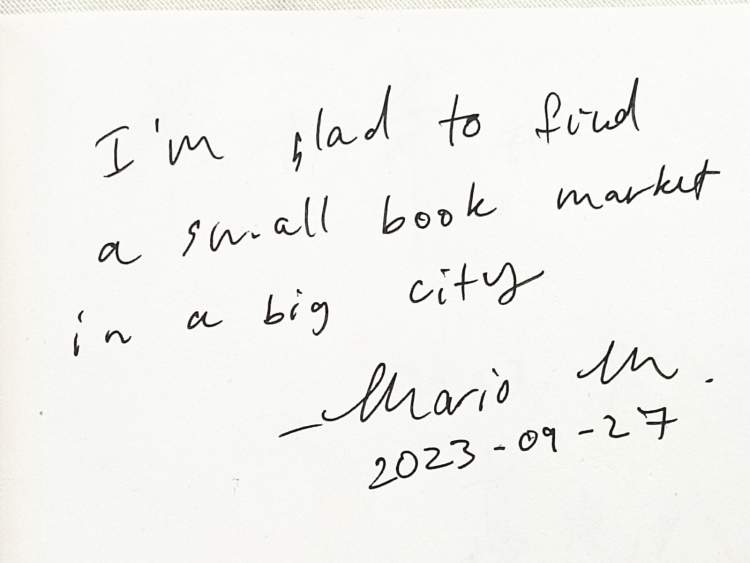 I'm glad to find
a small book market
in a big city
—Mario M.
2023-09-27